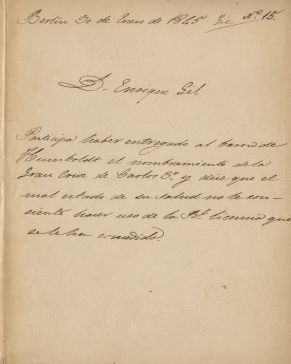 Berlin 30 de Enero de 1845 Nº 15.
D. Enrique Gil
Participa haber entregado al Baron de
Humboldt el nombramiento de la
Gran Cruz de Carlos 3º y dice que el
mal estado de su salud no le con-
siente hacer uso de la Rl. licencia que
se le ha concedido.